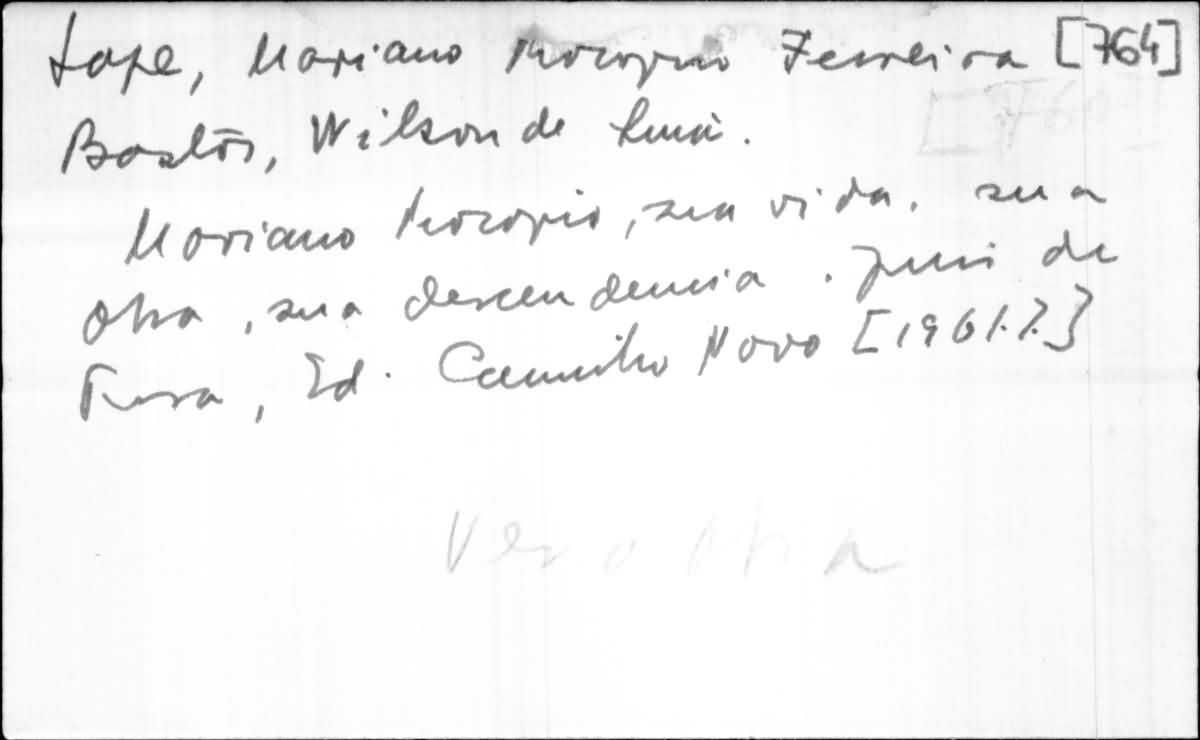 Lage, Mariano Procopio Ferreira [764]
[760]
Bastos, Wilson de Lima.
Mariano Procopio, sua vida, sua
obra, sua descendencia. Juiz de
Fora, Ed. Caminho Novo [1961.?.]
Ver obra